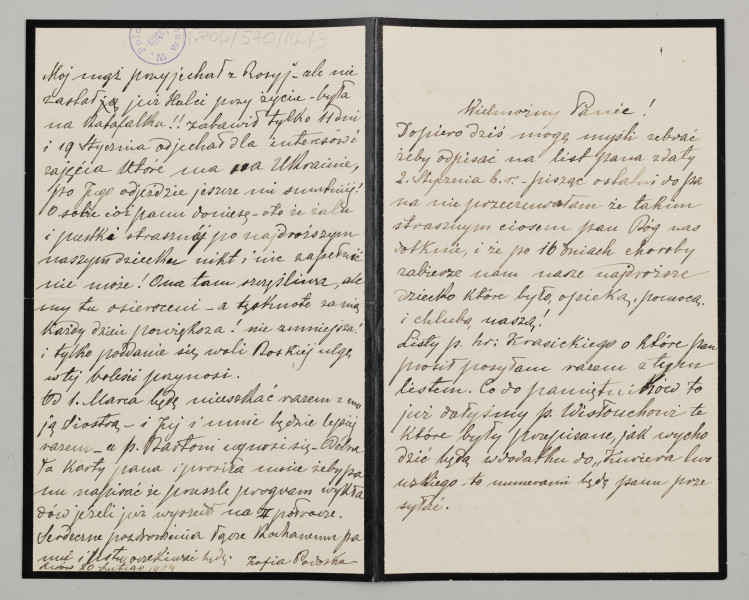 Wielmożny Panie!
Dopiero dziś mogę myśli zebrać
żeby odpisać na list pana z daty
2. Stycznia b.r. - pisząc ostatni do pa
na nie przeczuwałam że takim
strasznym ciosem pan Bóg nas
dotknie, i że po 16 dniach choroby
zabierze nam nasze najdroższe
dziecko które było, opieką, pomocą,
i chlubą naszą!
Listy p. hr: Krasickiego o które pan
prosił posyłam razem z tym
listem. Co do pamiętników to
już dałyśmy p. Wisłouchowi te
które były przepisane, jak wycho
dzić będą w dodatku do „Kuriera lwo
wskiego - to numerami będę panu prze
syłać.
I.POW/570/ML/3
Mój mąż przyjechał z Rosyj - ale nie
zastał już Halci przy życiu - była
na katafalku!! zabawił tylko 11 dni
i 19 Stycznia odjechał dla interesów i
zajęcia które ma na Ukrainie,
po Jego odjeździe jeszcze mi smutniej!
O sobie cóż panu doniosę - oto że żalu
i pustki strasznéj po najdroższym
naszym dziecku nikt i nic zapełnić
nie może! Ona tam szczęśliwa, ale
my tu osieroceni - a tęsknotę za nią
każdy dzień powiększa! nie zmniejsza!
i tylko poddanie się woli Boskiej ulgę
w tej boleści przynosi.
Od 1. Marca będę mieszkać razem z mo
ją Siostrą - i jej i mnie będzie lepiej
razem - a p. Bartoni wynosi się -
ta karty pana i prosiła mnie żeby pa
nu napisać że prześle program wykła
dów jeżeli już wyszedł na II półrocze.
Serdeczne pozdrowienia łączę Kochanemu pa
nu i listu oczekiwać będę. Zofia Podoska
Lwów 20 Lutego 1904